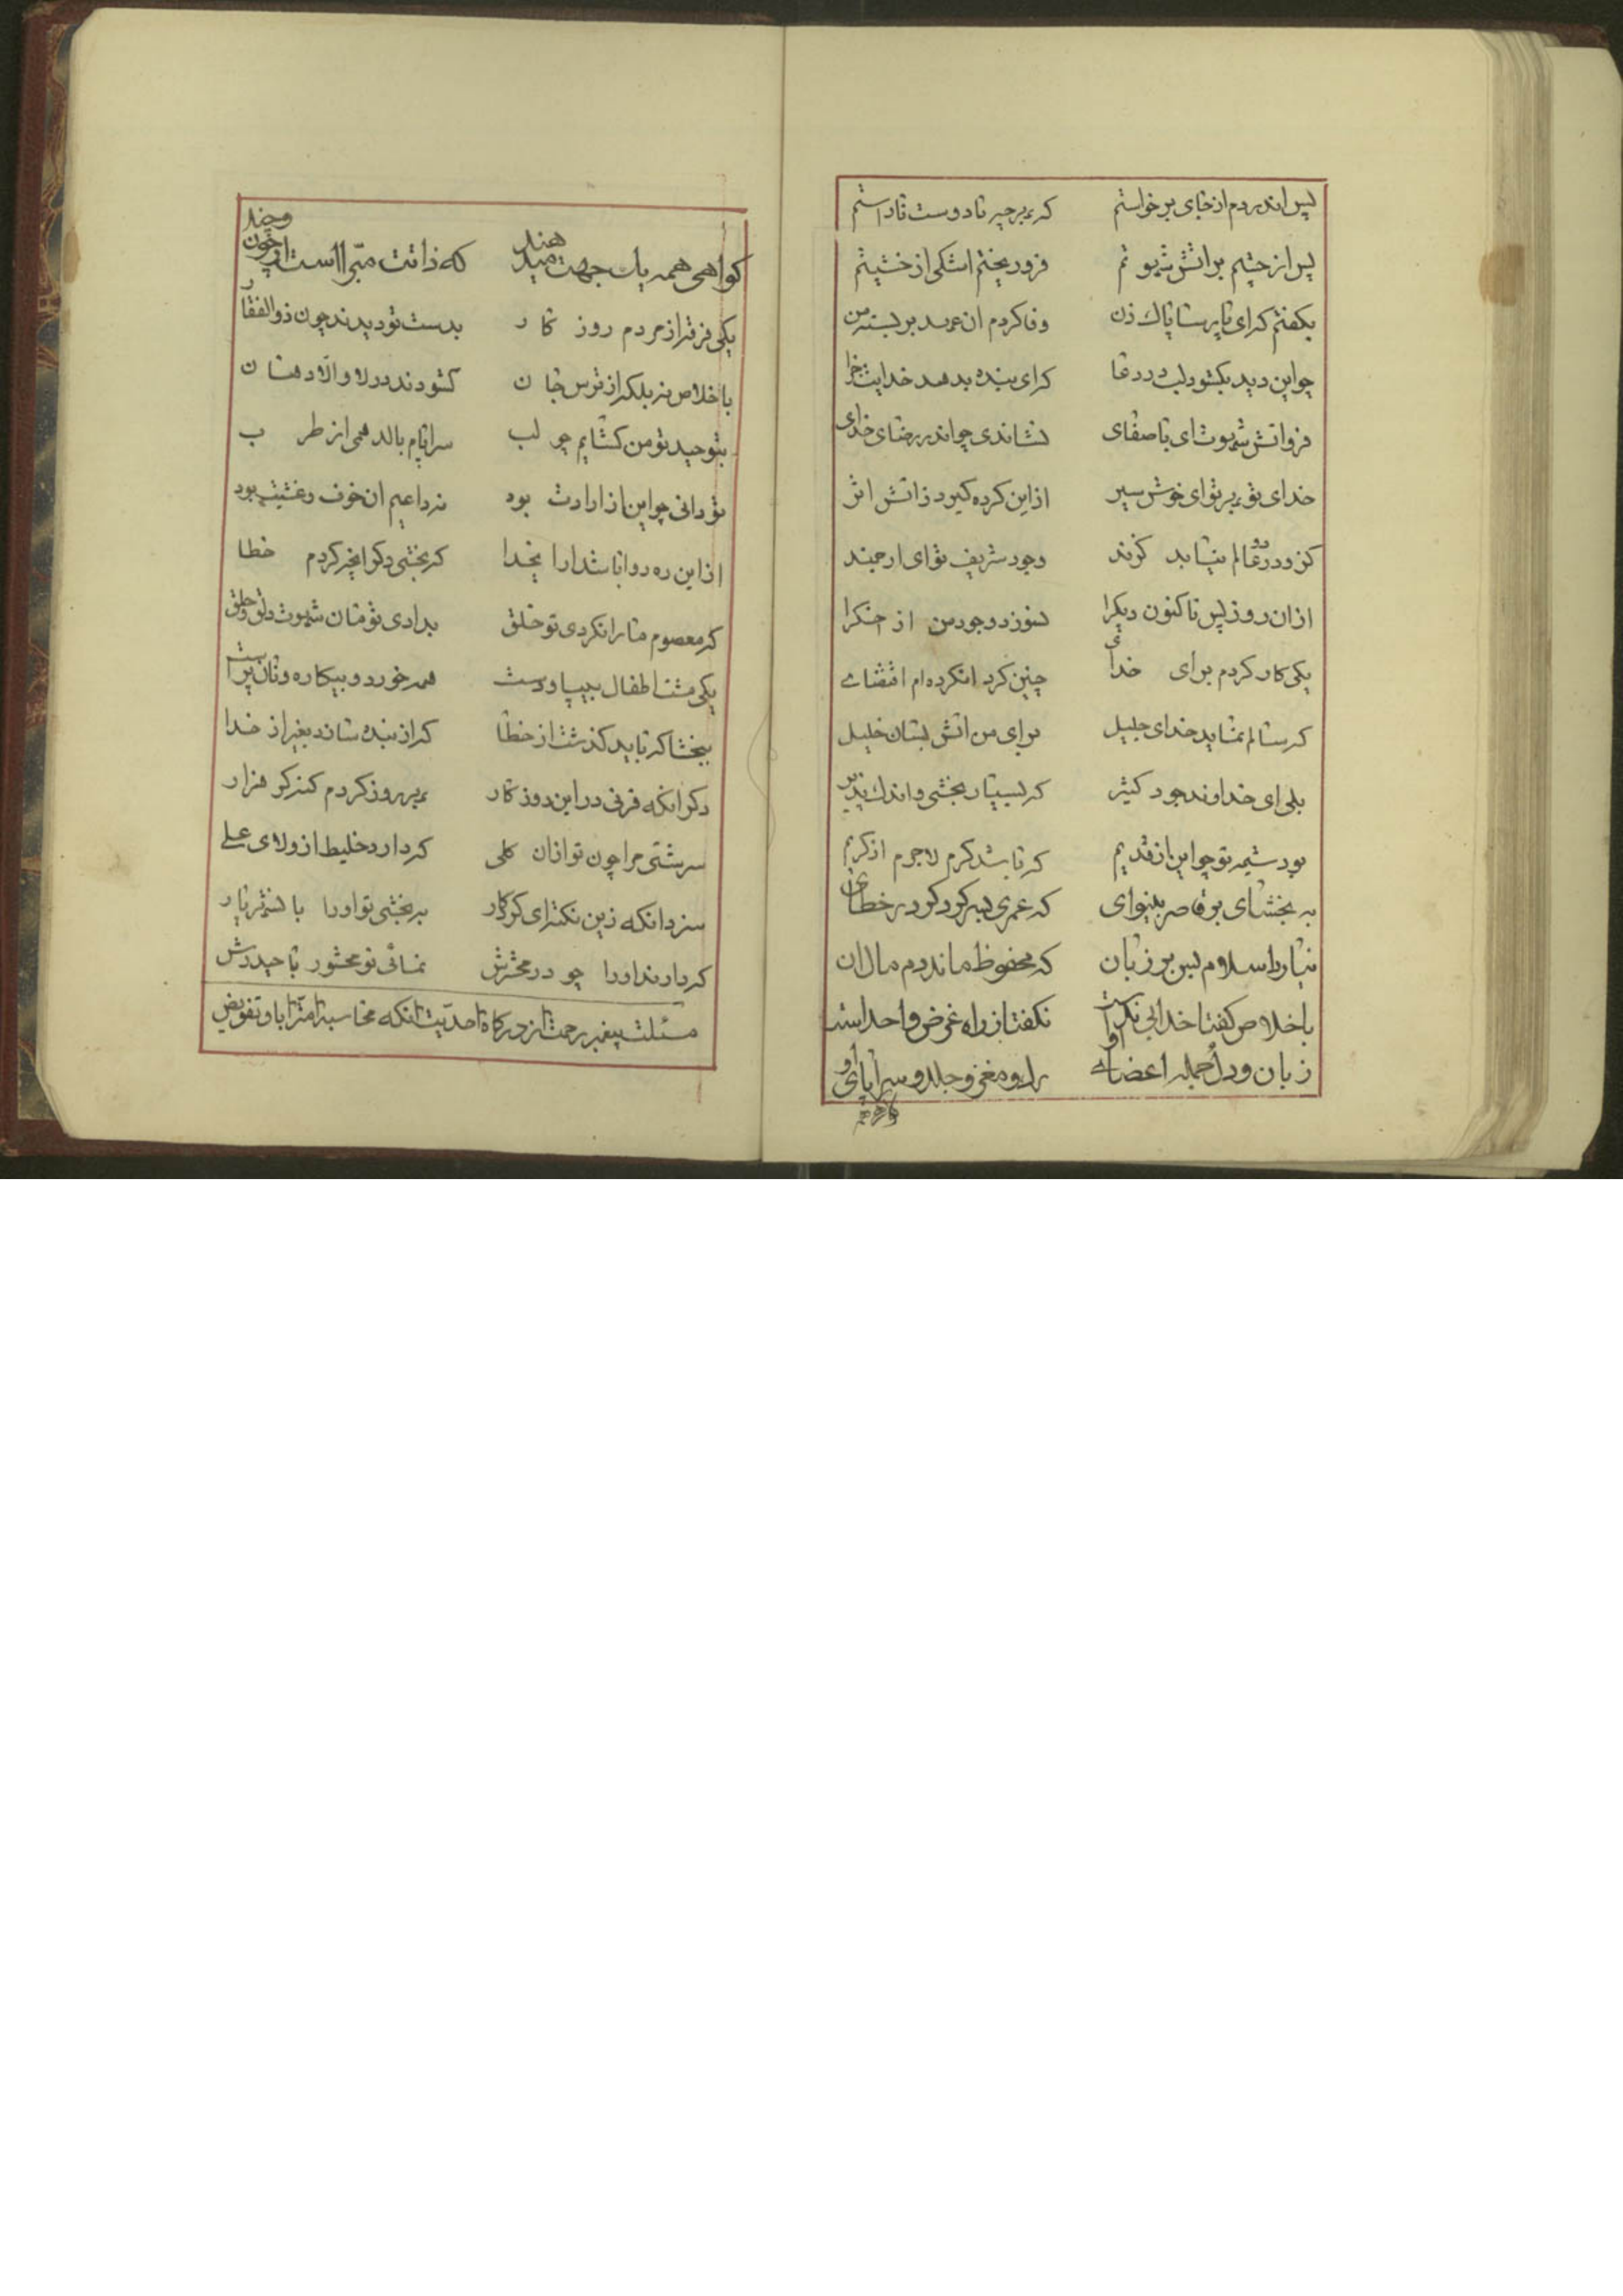 پس اندر دم از جای برخواستم که بر چیر تا دوست ناراستم
پس از چشم بر اتش شهوتم فرو ریختم اشکی از خشیتم
بگفتم که ای پارسا پاک زن وفا کردم ان عهد بر بسته من
چو این دید بگشود لب در دعا که ای بنده بدهد خدایت جزا
فرو اتش شهوت ای باصفای نشاندی چو اندر رضای خدای
خدای تو بر تو ای خوش سیر از این کرده گیرد ز اتش اثر
کز و در دو عالم نیابد گزند وجود شریف تو ای ارجمند
از ان روز پس تا کنون دیگرا نسوزد وجود من از اخگرا
یکی کار کردم برای خدای چنین کرد
که سالم نماید خدای جلیل برای من اتش بستان خلیل
بلی ای خداوند جود کثیر که بسیار بخشی و اندک پذیر
بود شیمه تو چو این از قدیم که باشد کرم لاجرم از کریم
به بخشای بر قاصر بینوای که عمری بسر کرد کو در خطای
نیاورد اسلام پس بر زبان که محفوظ ماند دم مال ان
باخلاص گفتا خدا بی نکر است نگفت از راه غرض واحد است
زبان و دل و جمله اعضای او رگ و مغز و جلد و سراپای او
گواهی همه یک جهت میدهند که ذاتت مبراست از چون و چند
یکی فرقه از مردم روزگار بدست تو دیدند چون ذوالفقار
باخلاص نه بلکه از ترس جان گشودند در لا و الا دهان
بتوحید تو من گشایم چو لب سراپام بالد همی از طرب
تو دانی چو این از ارادت بود نه داعیم ان خوف و خشیت بود
از این ره روا باشد ارا بخدا که بخشی دگر انچه کردم خطا
که معصوم ما را نکردی تو خلق بدادی تو مان شهوت دلق و حلق
یکی مشت اطفال بی پا و دست همه خورد و بیکاره و نان پرست
ببخشا که باید گذشت از خطا که از بنده شاند بغیر از خدا
دگر انکه فرنی در این روزگار بهر روز کردم گنه گر هزار
سرشتی مرا چون تو از ان گلی که دارد خلیط از ولای علی
سزد انکه زین نکته ای کردگار به بخشی تو او را باشهریار
که دارند او را چو در محشرش نمائی تو محشور با حیدرش
مسئلت پیغمبر رحمت از درگاه احدیت انکه محاسبه امت را باو تفویض